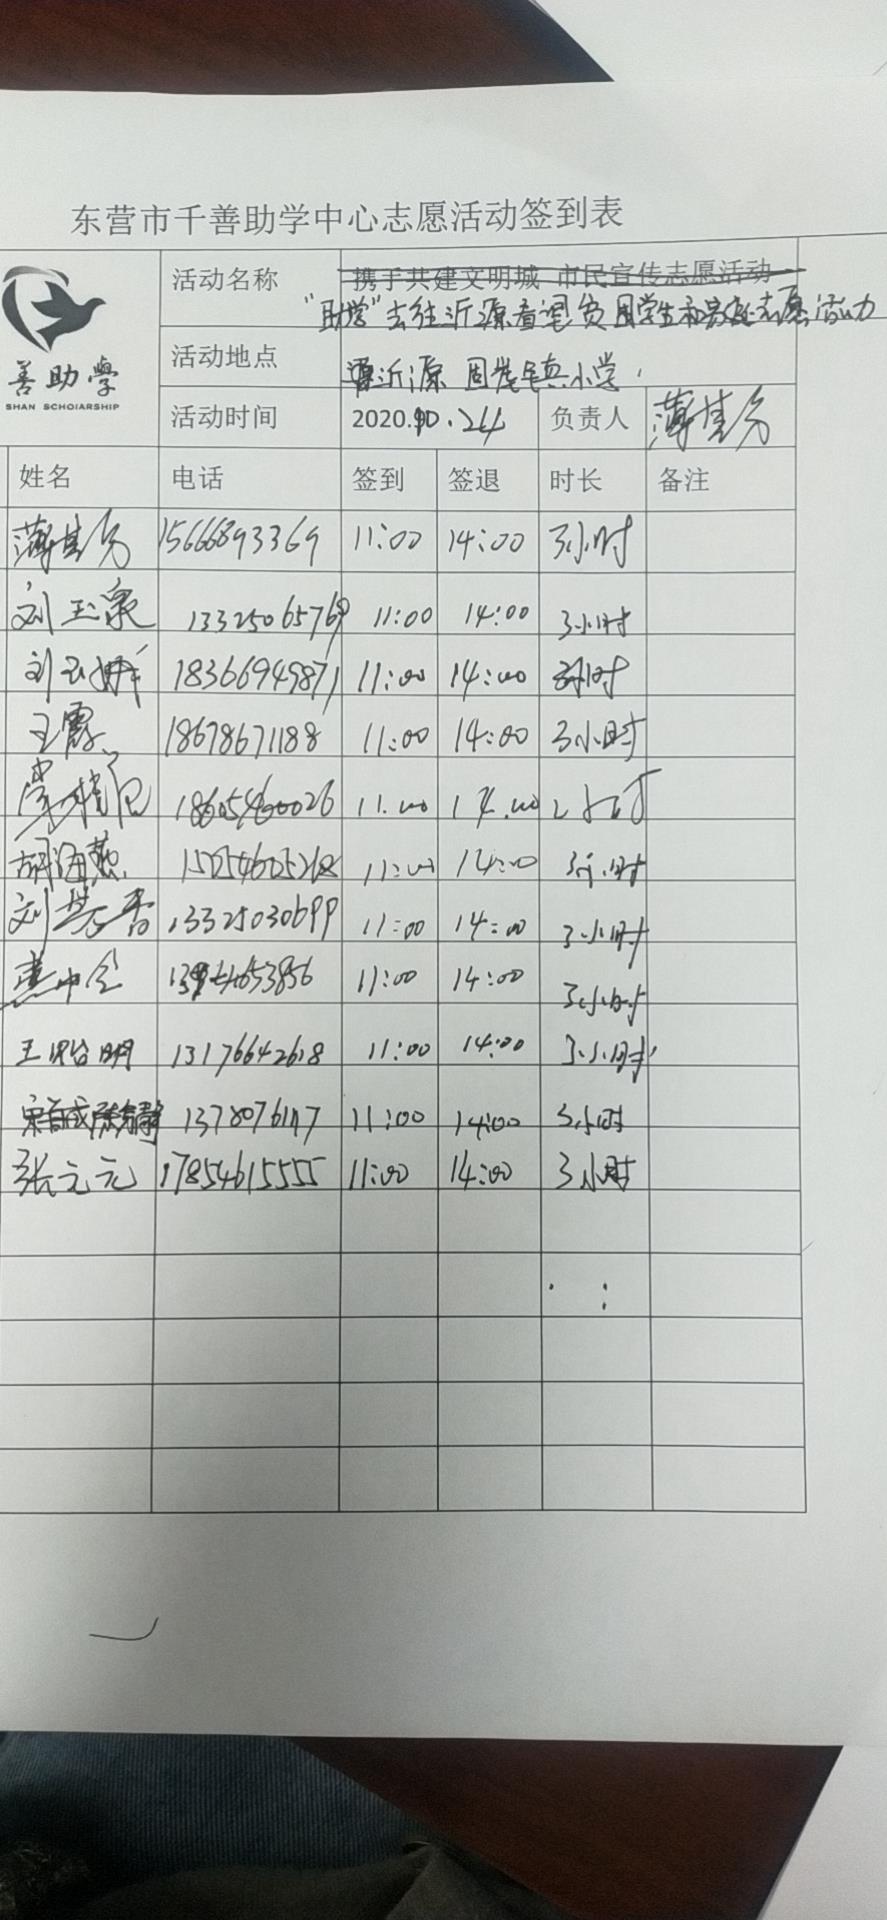 东营市千善助学中心志愿活动签到表
善助学
SHAN SCHOIARSHIP
活动名称 携手共建文明城 市民宣传志愿活动
"助学"去往沂源看望贫困学生和 志愿活动
活动地点 沂源 镇小学
活动时间 2020.10.24 负责人 薄其芬
姓名 电话 签到 签退 时长 备注
薄其芬 15666893369 11:00 14:00 3小时
刘玉泉 13325065769 11:00 14:00 3小时
刘玉 18366949871 11:00 14:00 3小时
王霞 18678671188 11:00 14:00 3小时
18605460026 11:00 14:00
胡海燕 15254605268 11:00 14:00 3小时
刘芳香 13325030699 11:00 14:00 3小时
4653856 11:00 14:00 3小时
王 明 13176642618 11:00 14:00 3小时
11:00 14:00 3小时
张元元 17854615555 11:00 14:00 3小时